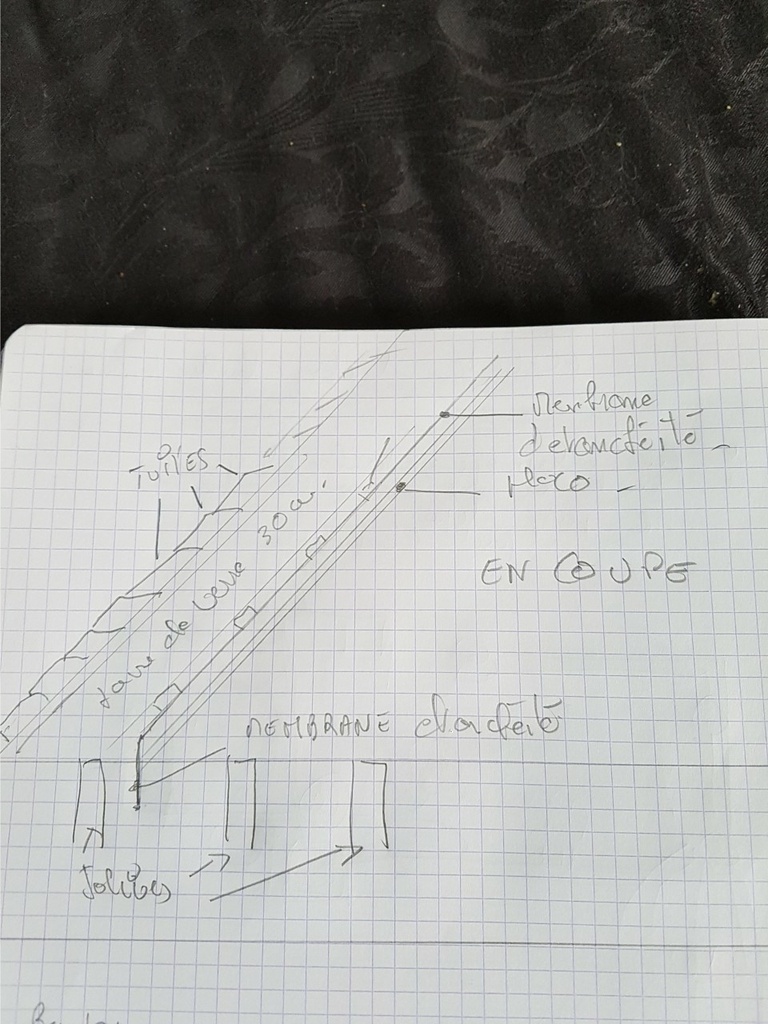 Membrane
d'étanchéité
Placo
TUILES
Laine de verre 30 cm.
EN COUPE
MEMBRANE étanchéité
Solives